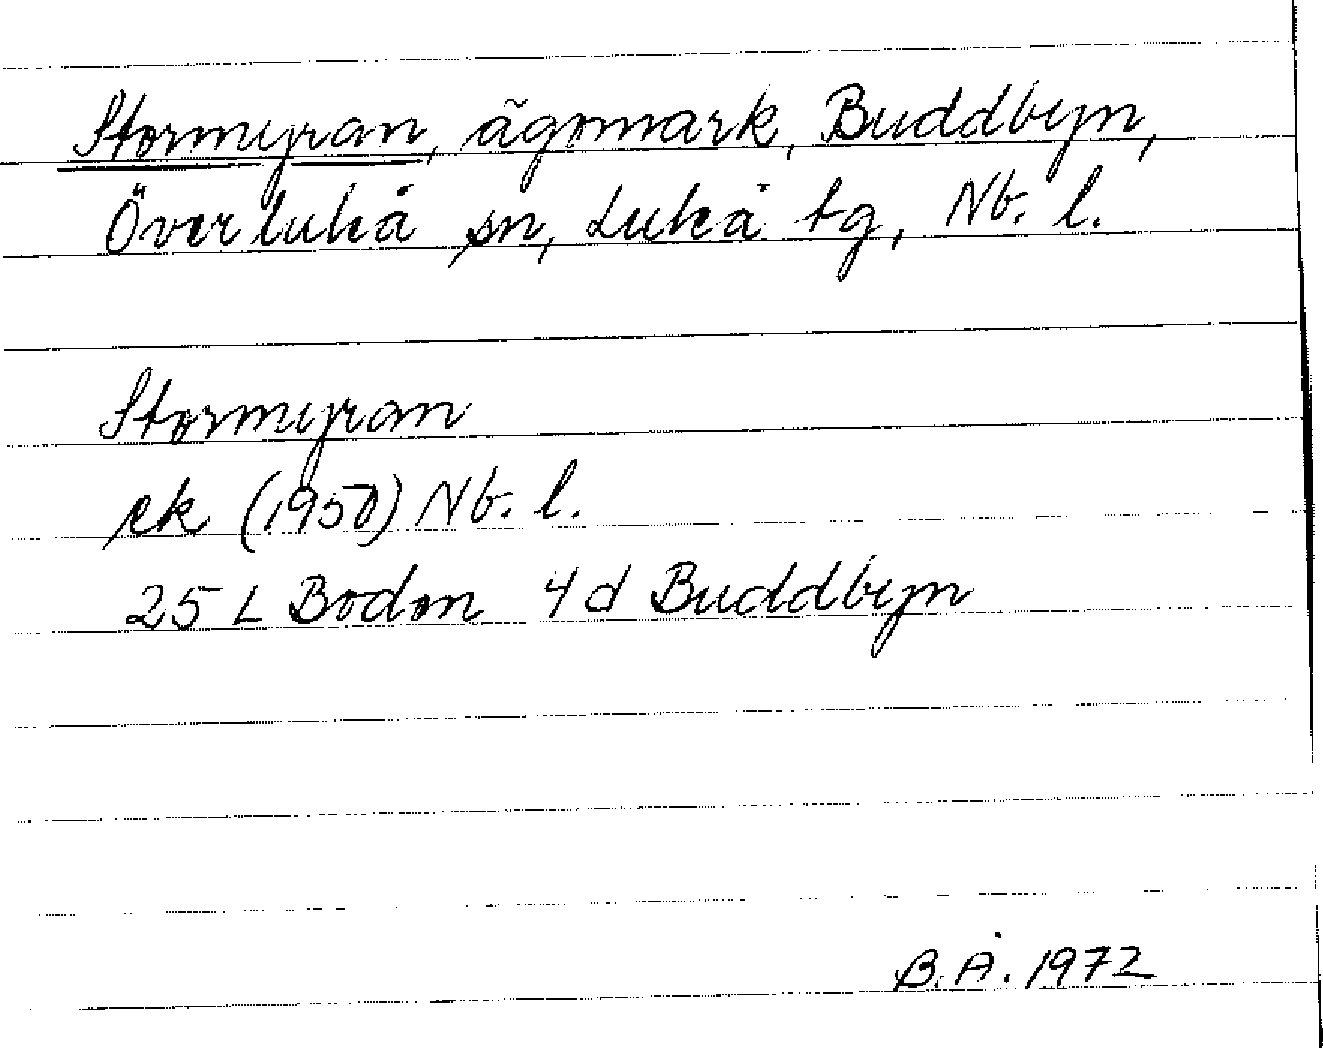 Stormyran, ägomark, Buddbyn,
Överluleå sn, Luleå tg, Nb. l.
Stormyran
ek (1950) Nb. l.
25 L Boden 4 d Buddbyn
B. Å. 1972